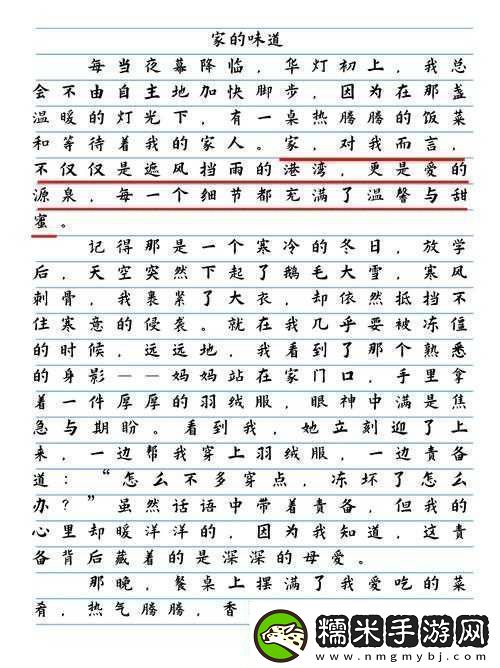 家的味道
每当夜幕降临，华灯初上，我总
会不由自主地加快脚步，因为在那盏
温暖的灯光下，有一桌热腾腾的饭菜
和等待着我的家人。家，对我而言，
不仅仅是遮风挡雨的港湾，更是爱的
源泉，每一个细节都充满了温馨与甜
蜜。
记得那是一个寒冷的冬日，放学
后，天空突然下起了鹅毛大雪，寒风
刺骨，我裹紧了大衣，却依然抵挡不
住寒意的侵袭。就在我几乎要被冻僵
的时候，远远地，我看到了那个熟悉
的身影——妈妈站在家门口，手里拿
着一件厚厚的羽绒服，眼神中满是焦
急与期盼。看到我，她立刻迎了上
来，一边帮我穿上羽绒服，一边责备
道：“怎么不多穿点，冻坏了怎么
办？”虽然话语中带着责备，但我的
心里却暖洋洋的，因为我知道，这责
备背后藏着的是深深的母爱。
那晚，餐桌上摆满了我爱吃的菜
肴，热气腾腾，香
糯米手游网
www.nmgmybj.com